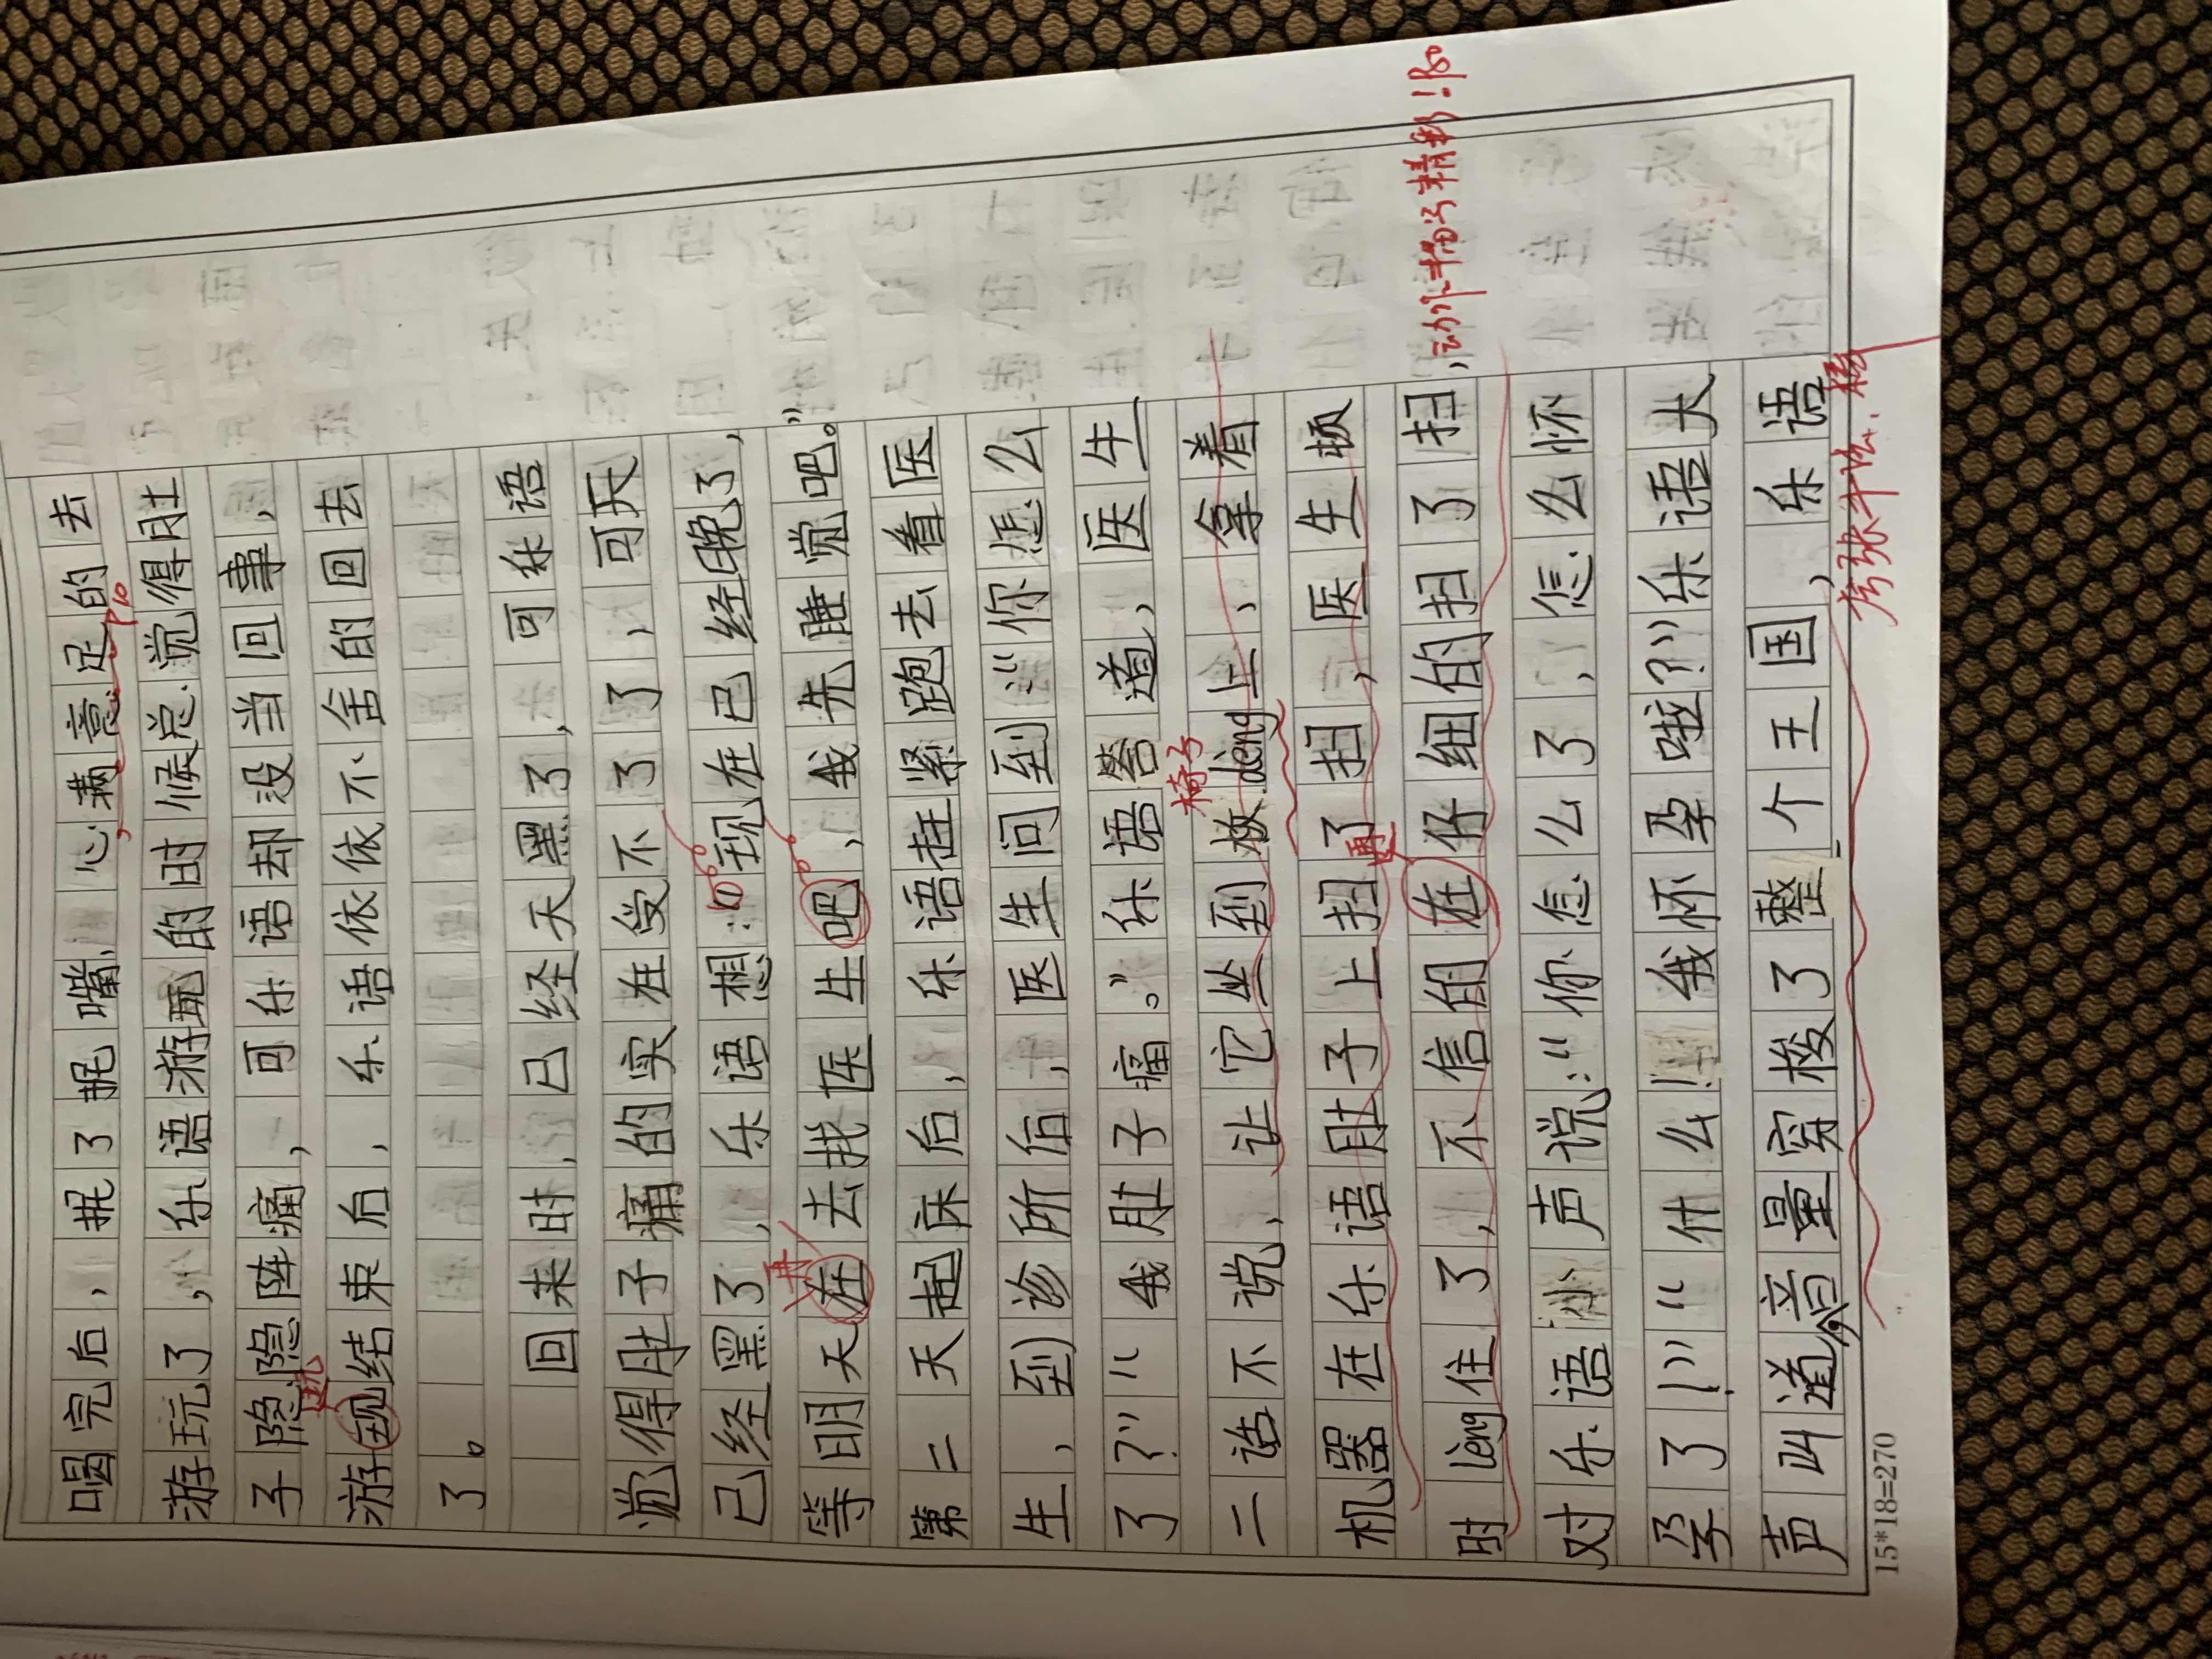 喝完后，抿了抿嘴，心满意足的去
游玩了，乐语游玩的时候总觉得肚
子隐隐阵痛，可乐语却没当回事，
游现结束后，乐语依依不舍的回去
了。
回来时，已经天黑了，可乐语
觉得肚子痛的实在受不了了，可天
已经黑了，乐语想：现在已经晚了，
等明天在去找医生吧，我先睡觉吧。”
第二天起床后，乐语赶紧跑去看医
生，到诊所后，医生问到：“你怎么
了？”“我肚子痛。”乐语答道，医生
二话不说，让它坐到板dèng上，拿着
机器在乐语肚子上扫了扫，医生顿
时lèng住了，不信的在仔细的扫了扫，
对乐语小声说：“你怎么了，怎么怀
孕了！”“什么！我怀孕啦？”乐语大
声叫道，音量穿梭了整个王国，乐语
15*18=270
P10
玩
再
椅子
再
动作描写精彩！P80
夸张手法，